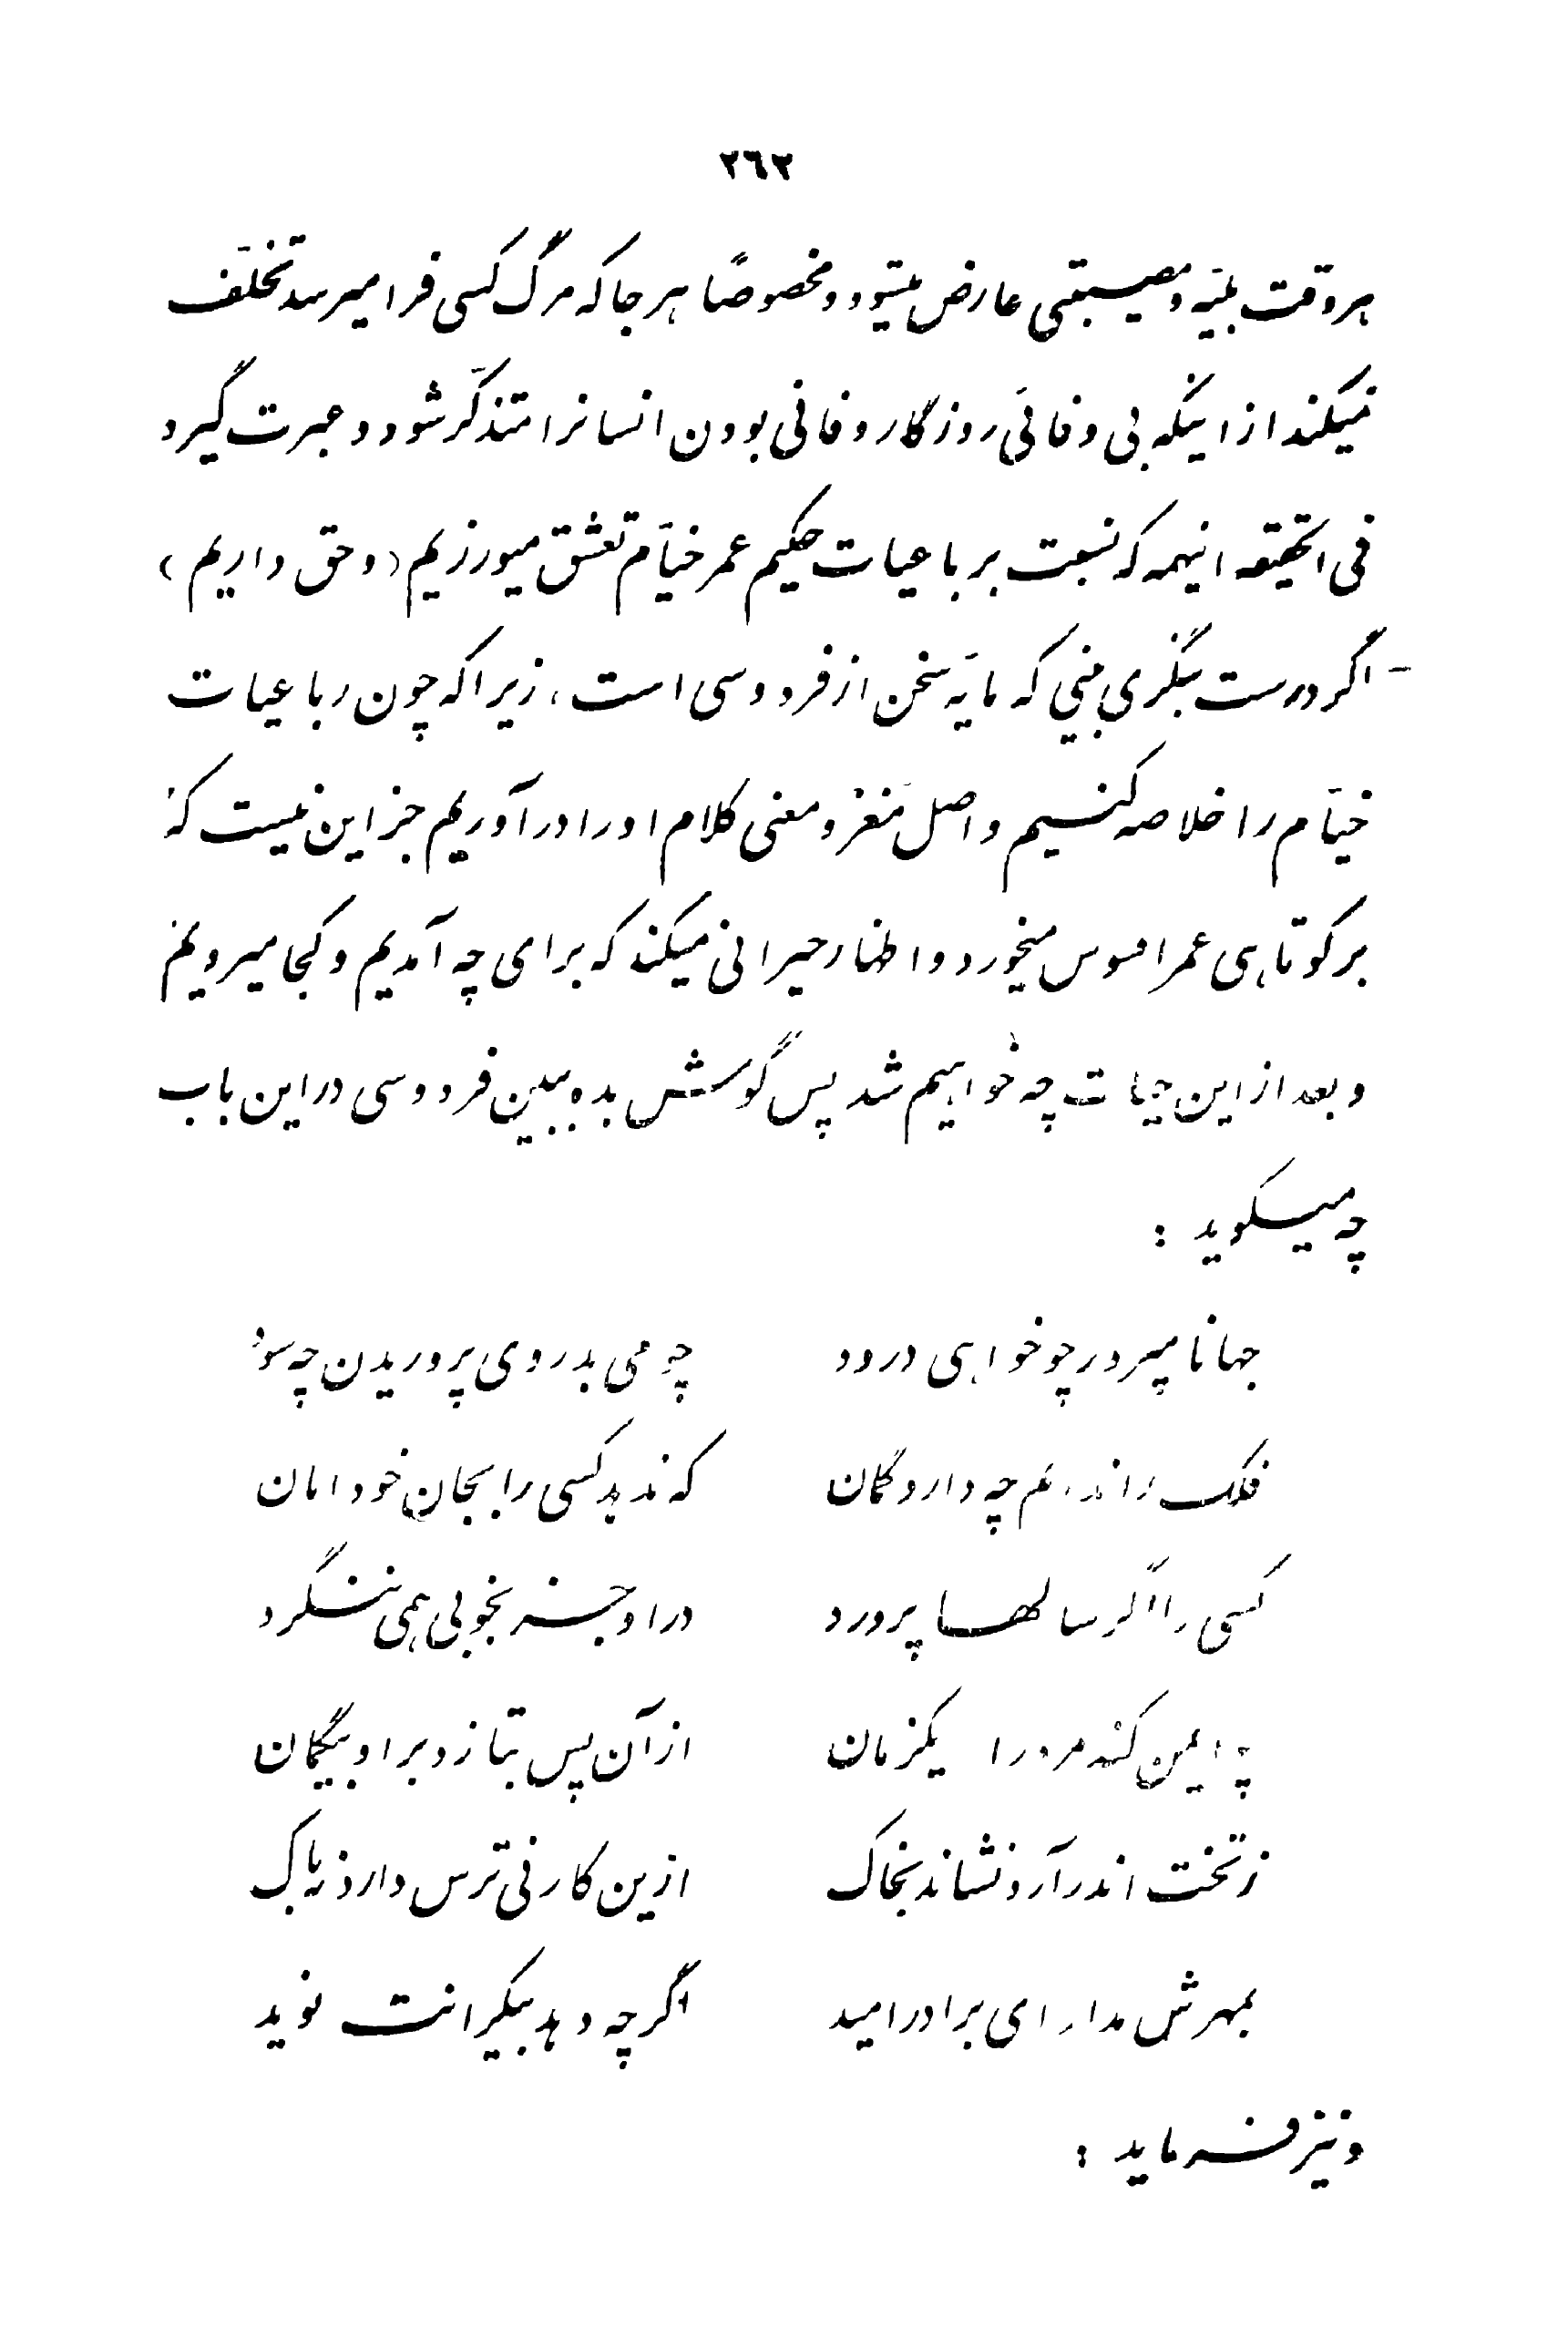 ٢٦٢
هروقت بلیّه و مصیبتی عارض میشود و مخصوصاً هر جا که مرگ کسی فرا میرسد تخلّف
نمیکند از اینکه بی وفائی روزگار و فانی بودن انسانرا متذکّر شود و عبرت گیرد
فی الحقیقه اینهمه که نسبت برباعیات حکیم عمر خیّام تعشّق میورزیم (و حق داریم)
اگر درست بنگری بینی که مایه سخن از فردوسی است، زیرا که چون رباعیات
خیّام را خلاصه کنیم و اصل مغز و معنی کلام او را درآوریم جز این نیست که
بر کوتاهی عمر افسوس میخورد و اظهار حیرانی میکند که برای چه آمدیم و کجا میرویم
و بعد از این حیات چه خواهیم شد پس گوش بده ببین فردوسی در این باب
چه میگوید :
جهانا مپرور چو خواهی درود چو می بدروی پروریدن چه سود
فلک را ندانم چه دارد گمان که ندهد کسی را بجان خود امان
کسی را اگر سالها پرورد در او جز بخوبی همی ننگرد
چو ایمن کند مرد را یکزمان از آن پس بتازد بر او بیگمان
ز تخت اندر آرد نشاند بخاک ازین کار نی ترس دارد نه باک
بمهرش مدار ای برادر امید اگرچه دهد بیکرانت نوید
و نیز فرماید :